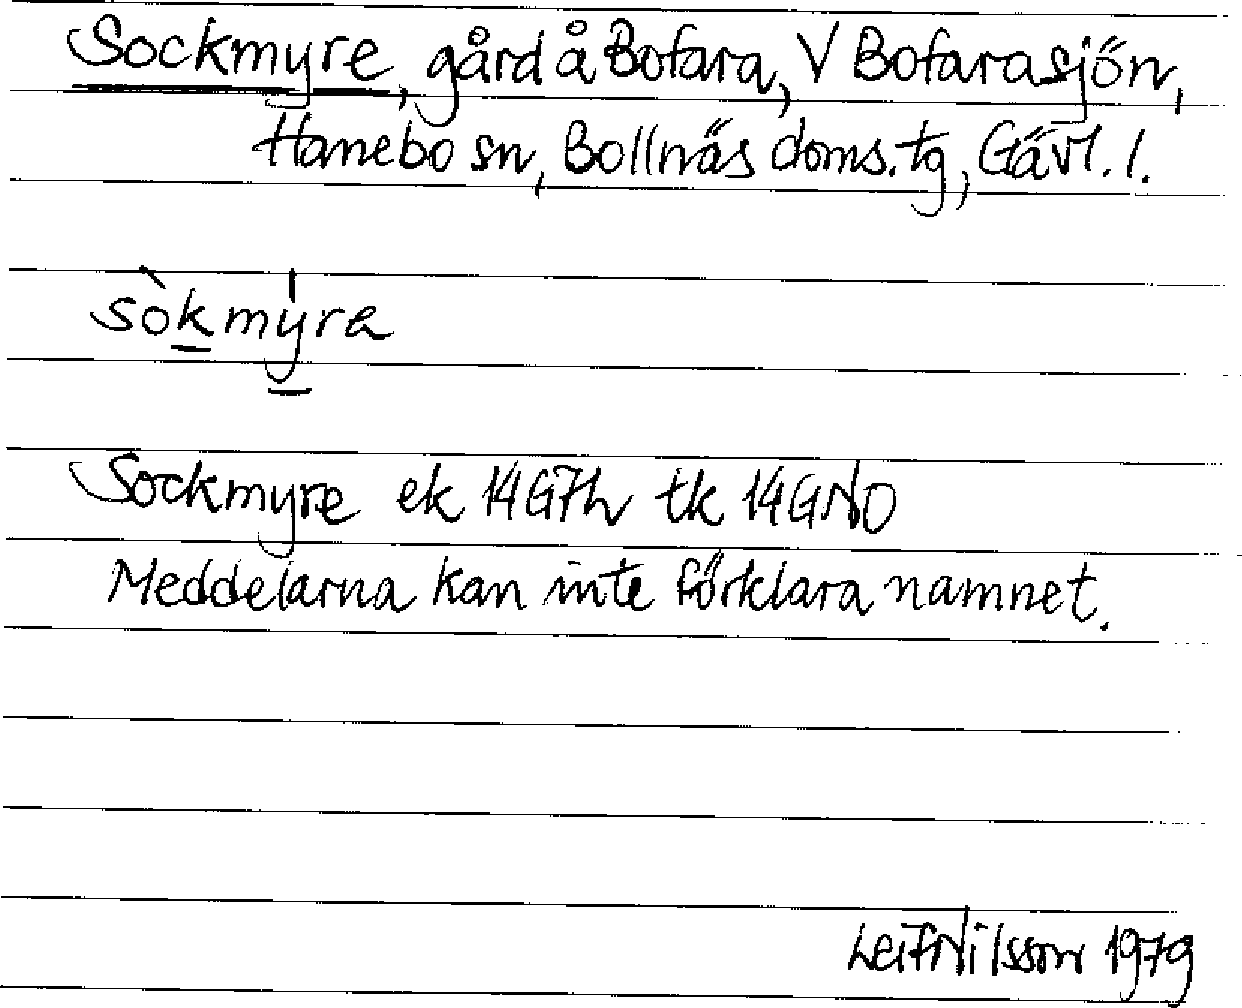 Sockmyre, gård å Bofara, V Bofarasjön,
Hanebo sn, Bollnäs doms. tg, Gävl. l.
sòkmýra
Sockmyre ek 14G7h tk 14GNO
Meddelarna kan inte förklara namnet.
Leif Nilsson 1979